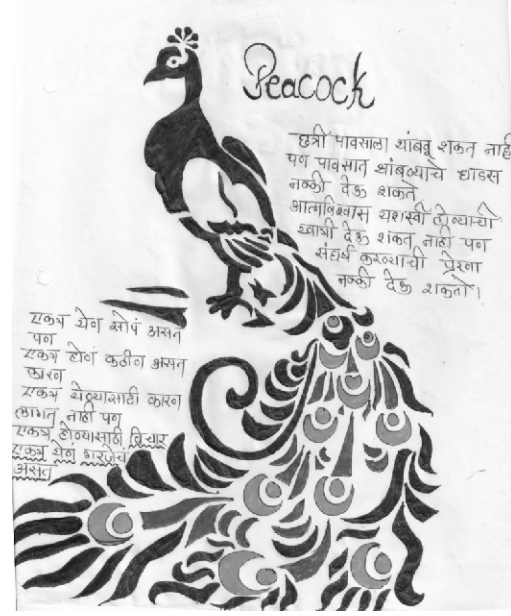 Peacock
छत्री पावसाला थांबवू शकत नाही
पण पावसात थांबण्याचे धाडस
नक्की देऊ शकते
आत्मविश्वास यशस्वी होण्याची
खात्री देऊ शकत नाही पण
संघर्ष करण्याची प्रेरना
नक्की देऊ शकतो।
एकत्र येण सोपं असत
पण
एकत्र होणं कठीण असत
कारण
एकत्र येण्यासाठी कारण
लागत नाही पण
एकत्र होण्यासाठी विचार
एकत्र येण गरजेच
असत